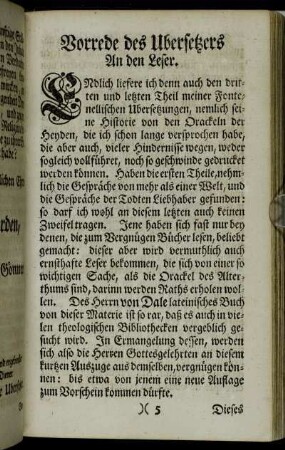 Vorrede des Ubersetzers
An den Leser.
ENdlich liefere ich denn auch den drit-
ten und letzten Theil meiner Fonte-
nellischen Ubersetzungen, nemlich sei-
ne Historie von den Orackeln der
Heyden, die ich schon lange versprochen habe,
die aber auch, vieler Hindernisse wegen, weder
sogleich vollführet, noch so geschwinde gedrucket
werden können. Haben die ersten Theile, nehm-
lich die Gespräche von mehr als einer Welt, und
die Gespräche der Todten Liebhaber gefunden:
so darf ich wohl an diesem letzten auch keinen
Zweifel tragen. Jene haben sich fast nur bey
denen, die zum Vergnügen Bücher lesen, beliebt
gemacht: dieser aber wird vermuthlich auch
ernsthafte Leser bekommen, die sich von einer so
wichtigen Sache, als die Orackel des Alter-
thums sind, darinn werden Raths erholen wol-
len. Des Herrn von Dale lateinisches Buch
von dieser Materie ist so rar, daß es auch in vie-
len theologischen Bibliothecken vergeblich ge-
sucht wird. In Ermangelung dessen, werden
sich also die Herren Gottesgelehrten an diesem
kurtzen Auszuge aus demselben, vergnügen kön-
nen: bis etwa von jenem eine neue Auflage
zum Vorschein kommen dürfte.
)( 5 Dieses